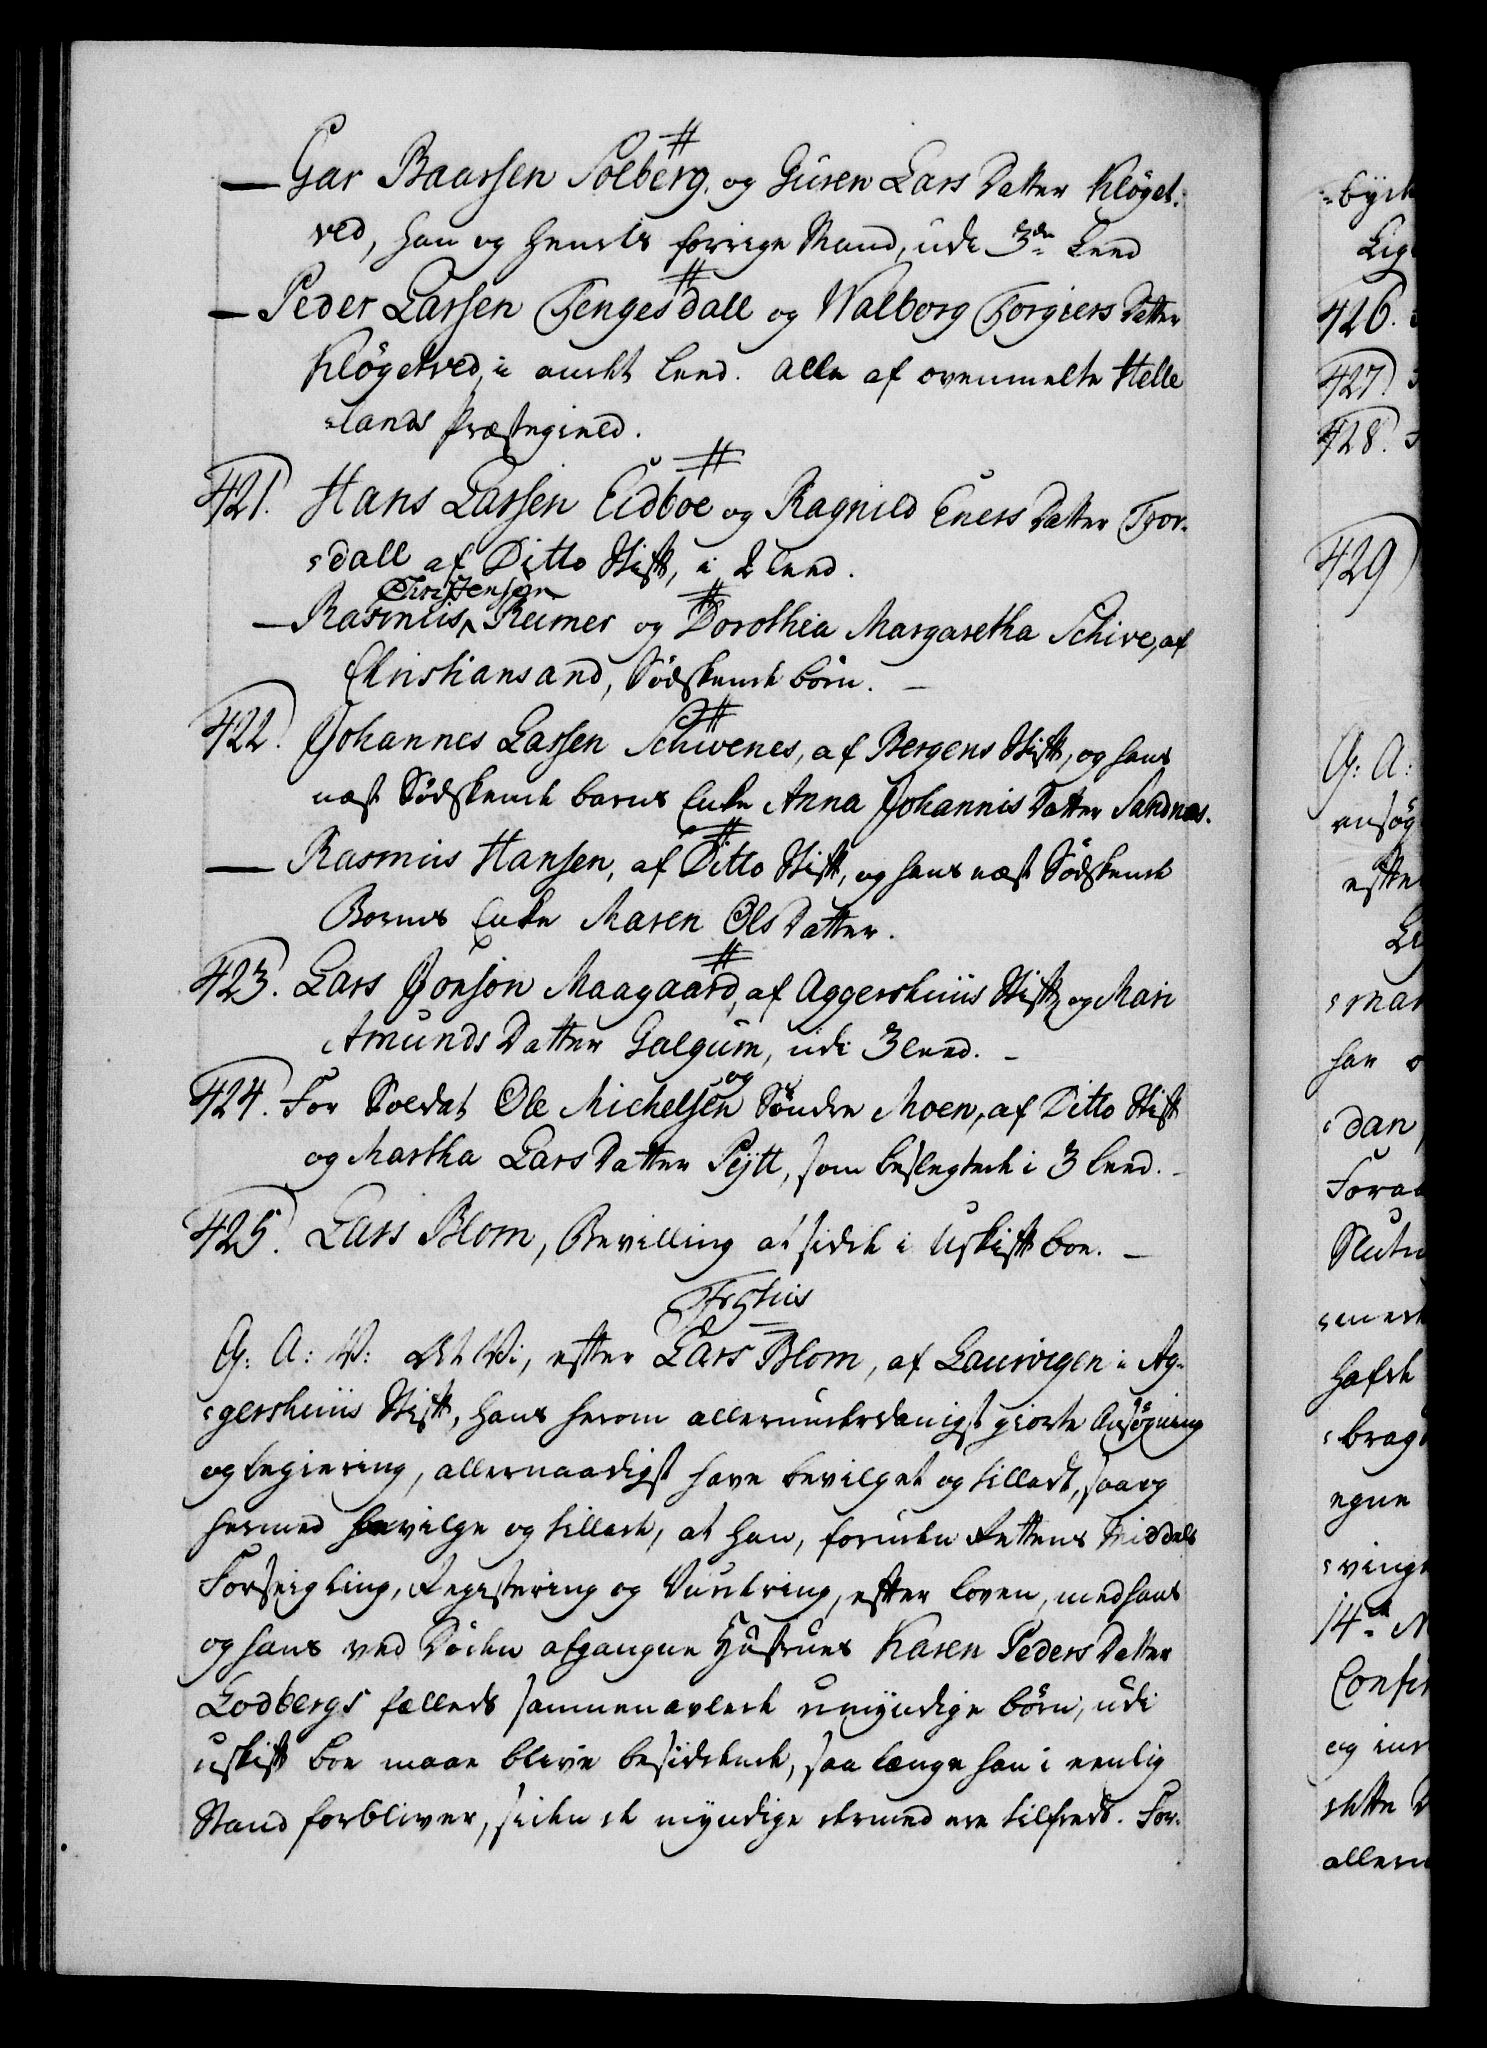 — Gar Baarsen Solberg, og Guren Lars Datter Kløget-
ved, han og hendes forrige Mand, udi 3de Leed
— Peder Larsen Tengesdall og Walborg Torgiers Datter
Kløgetved, i andet Leed. Alle af ovenmelte Helle
-lands Præstegield.
421. Hans Larsen Eidboe og Ragnild Eners Datter Tror-
-dall af Ditto Stift, i 2 Leed.
— Rasmus Christensen Reimer og Dorothea Margaretha Schive, af
Christiansand, Södskende börn. —
422. Johannes Larsen Schivenes, af Bergens Stift, og hans
næst Södskende barns Enke Anna Johannis Datter Sandnæs.
— Rasmus Hansen, af Ditto Stift, og hans næst Södskende
Barns Enke Maren Ols Datter.
423. Lars Jonson Maagaard, af Aggershuus Stift, og Mari
Amunds Datter Galgum, udi 3 Leed. —
424. For Soldat Ole Michelsen og Söndre Moen, af Ditto Stift
og Martha Lars Datter Pytt, som beslegtede i 3 Leed. —
425. Lars Blom, Bevilling at sidde i Uskift boe. —
Fr 5tus
G: A: V: At Vi, efter Lars Blom, af Laurvigen i Ag-
-gershuus Stift, hans herom allerunderdanigst giorte Ansøgning
og begiering, allernaadigst have bevilget og tilladt, saa og
hermed bevilge og tillade, at han, foruden Rettens Middels
Forseigling, Registering og Vurdering, efter Loven, med hans
og hans ved Döden afgangne Hustrues Karen Peders Datter
Lodbergs fælleds sammenavlede umyndige börn, udi
uskift boe maae blive besiddende, saa længe han i eenlig
Stand forbliver, siden de myndige dermed ere tilfreds. For-